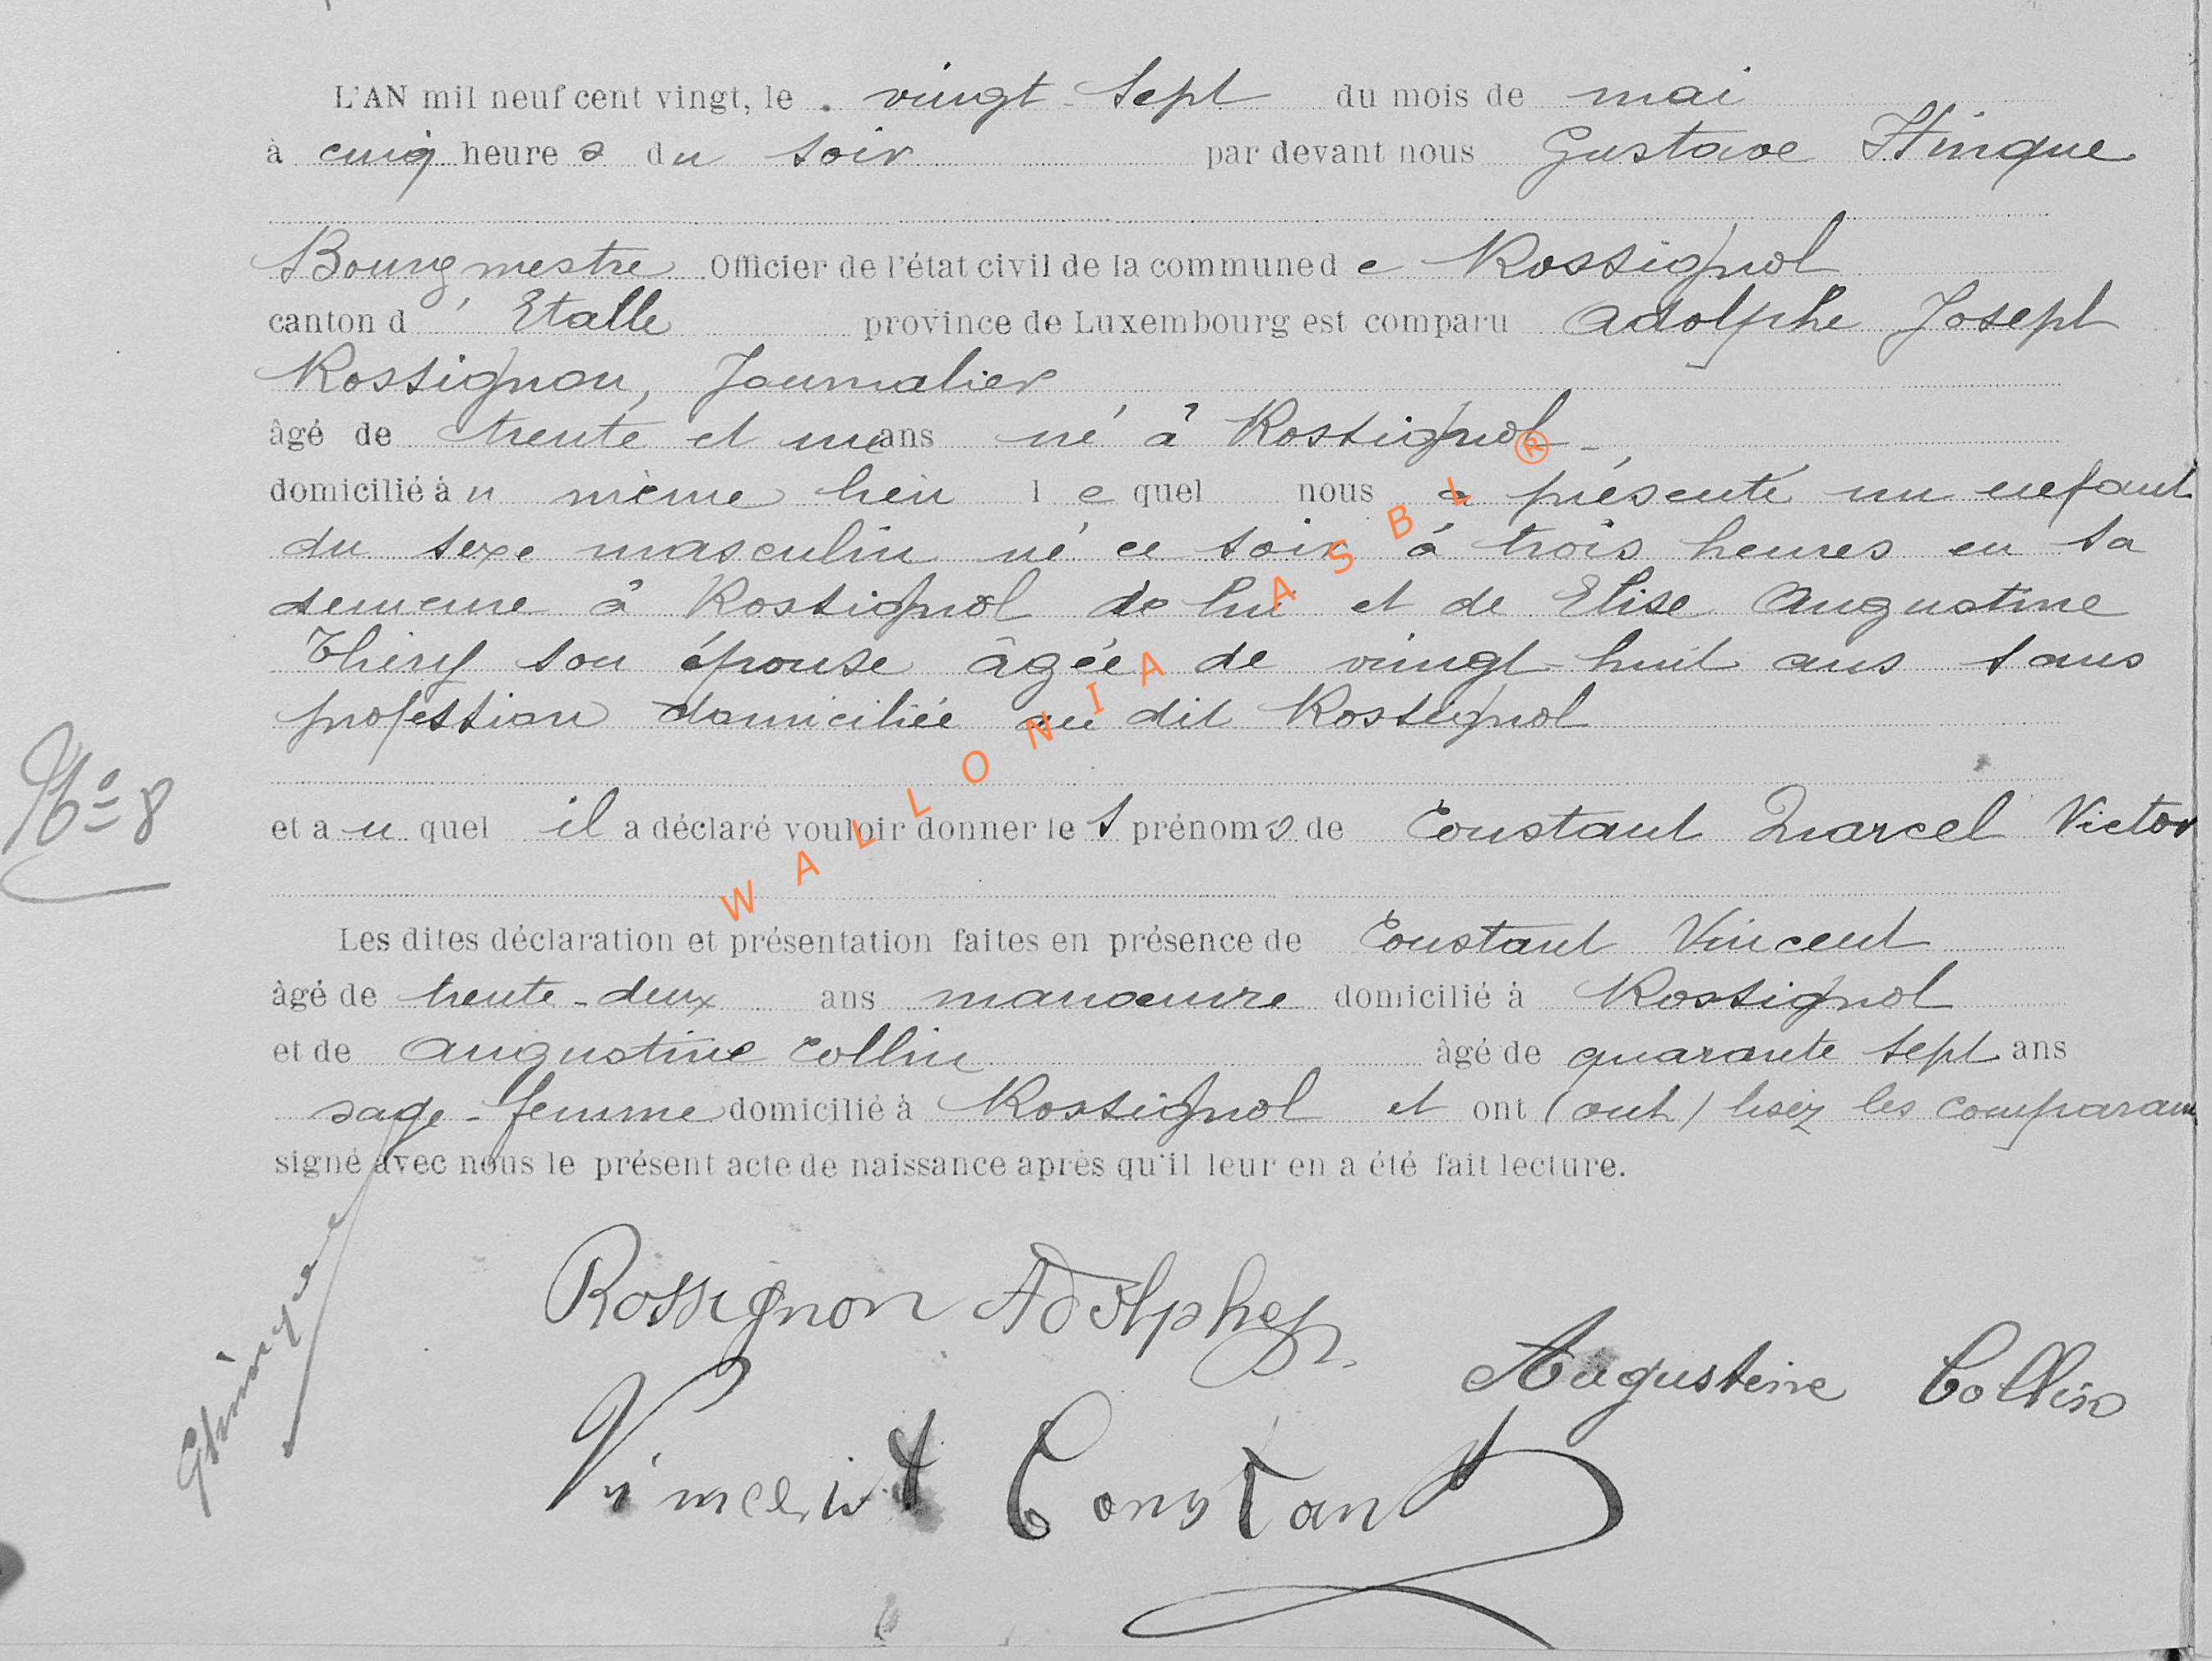 L'AN mil neuf cent vingt, le . vingt-sept du mois de mai
à cinq heures du soir par devant nous Gustave Hinque
Bourgmestre Officier de l'état civil de la commune de Rossignol
canton d'Etalle province de Luxembourg est comparu Adolphe Joseph
Rossignon, Journalier
âgé de trente et un ans né à Rossignol
domicilié au même lieu lequel nous a présenté un enfant
du sexe masculin né ce soir à trois heures en sa
demeure à Rossignol de lui et de Elise Augustine
Thiry son épouse âgée de vingt-huit ans sans
profession domiciliée au dit Rossignol
N° 8
et auquel il a déclaré vouloir donner les prénoms de Constant Marcel Victor
Les dites déclaration et présentation faites en présence de Constant Vincent
âgé de trente-deux ans manœuvre domicilié à Rossignol
et de Augustine Collin âgé de quarante sept ans
sage-femme domicilié à Rossignol et ont (ont) lisez les comparan
signé avec nous le présent acte de naissance après qu'il leur en a été fait lecture.
Rossignon Adolphe
Augustine Collin
Vincent Constant
GHinque
WALLONIA ASBL ®